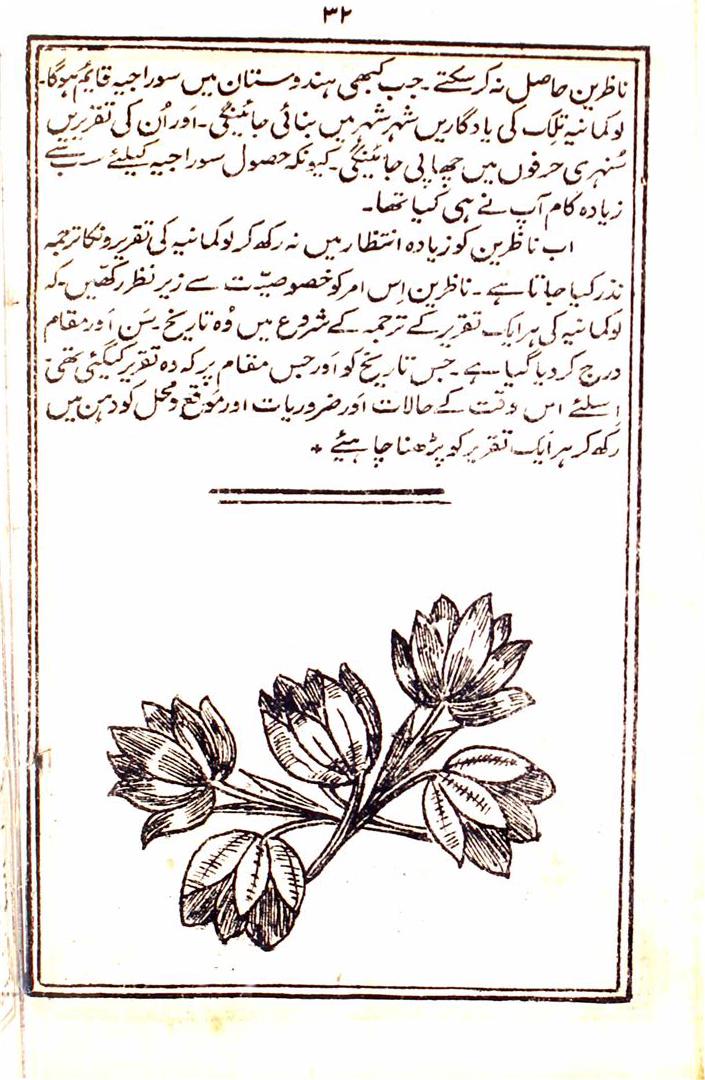 ۳۲
ناظرین حاصل نہ کرسکتے۔ جب کبھی ہندوستان میں سوراجیہ قایٔم ہوگا۔
لوکمانیہ تلک کی یادگاریں شہر شہر میں بنائی جائینگی۔ اَور اُن کی تقریریں
سُنہری حرفوں میں چھاپی جائینگی۔ کیونکہ حصول سوراجیہ کیلئے سب سے
زیادہ کام آپ نے ہی کیا تھا۔
اب ناظرین کو زیادہ انتظار میں نہ رکھ کر لوکمانیہ کی تقریرونکا ترجمہ
نذر کیا جاتا ہے۔ ناظرین اِس امر کو خصوصیّت سے زیر نظر رکھّیں۔ کہ
لوکمانیہ کی ہر ایک تقریر کے ترجمہ کے شروع میں وُہ تاریخ۔ سن اَور مقام
درج کر دیا گیا ہے۔ جس تاریخ کو اَور جس مقام پر کہ وہ تقریر کیگئی تھی
اِسلئے اس وقت کے حالات اَور ضروریات اور موقع و محل کو ذہن میں
رکھ کر ہر ایک تقریر کو پڑھنا چاہیئے *